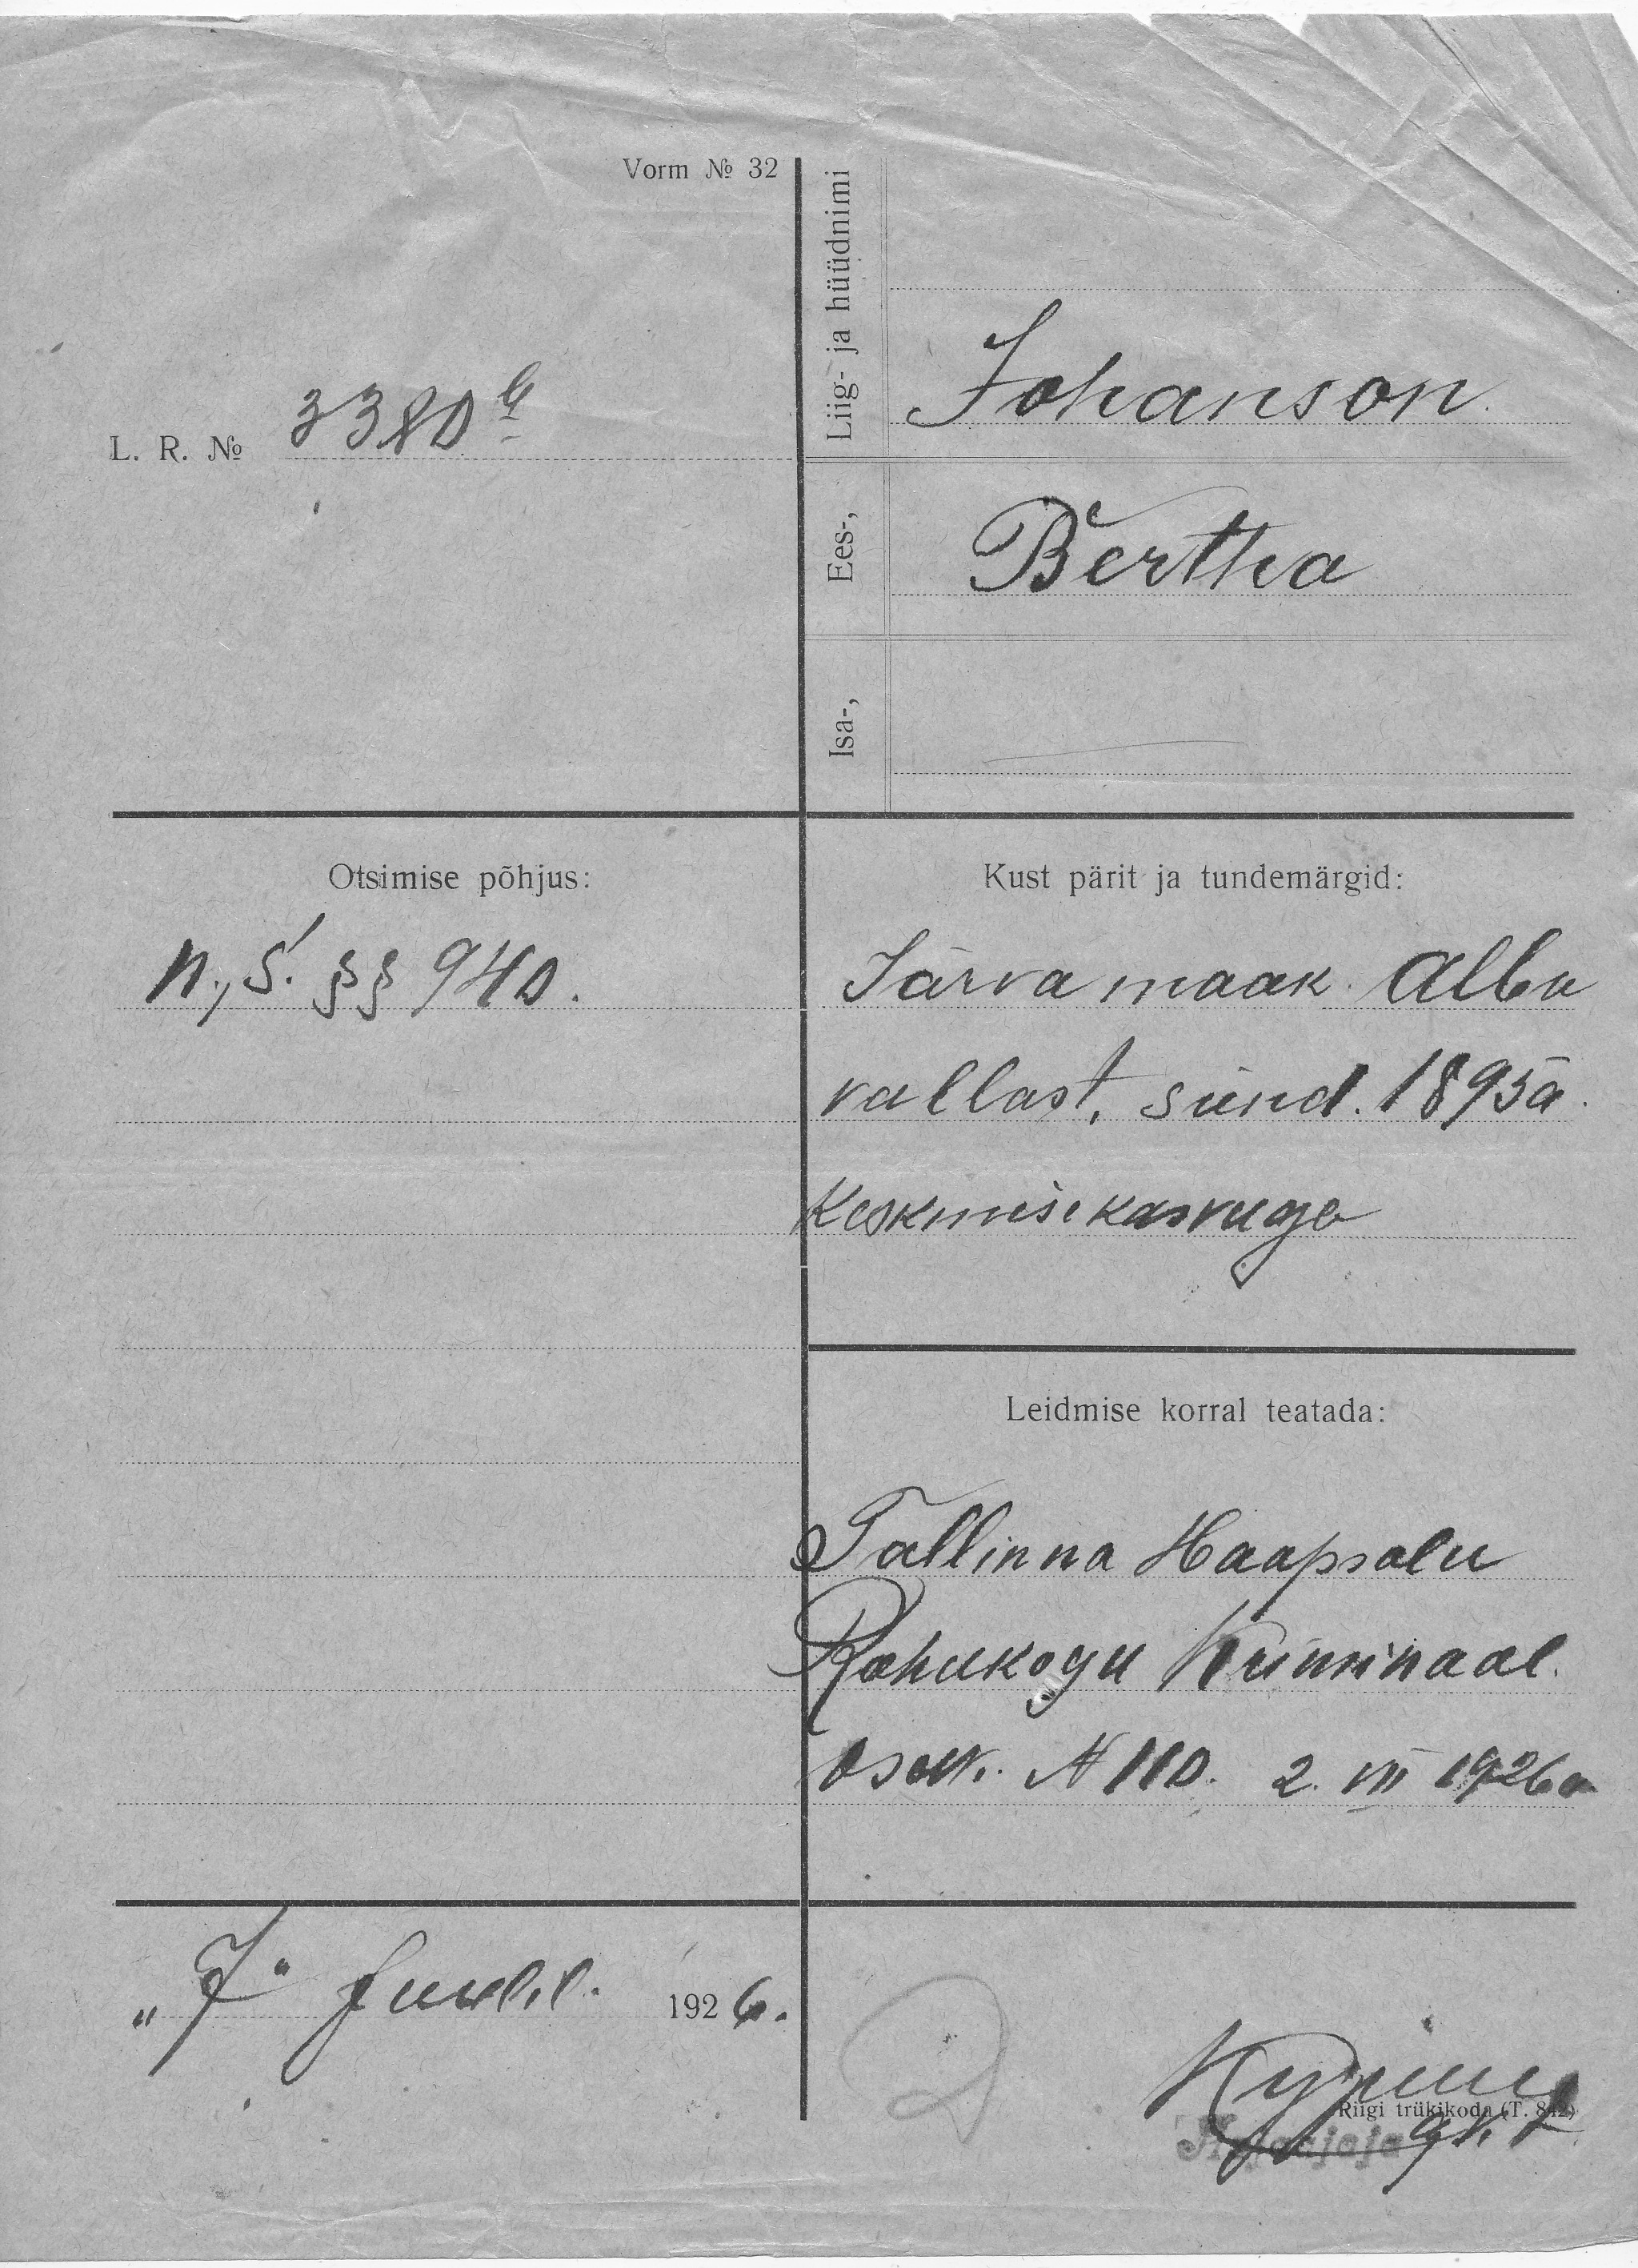 Vorm № 32
L. R. № 3380
Liig- ja hüüdnimi
Johanson.
Ees-,
Bertha
Isa-,
Otsimise põhjus:
N., S. §§ 940.
Kust pärit ja tundemärgid:
Järva maak. Albu
vallast, sünd. 1895 a.
Keskmise kasvuga
Leidmise korral teatada:
Tallinna Haapsalu
Rahukogu Kriminaal.
osak. N 110. 2. VII 1926 a
„7" Juulil. 1926.
Riigi trükikoda (T. 842)